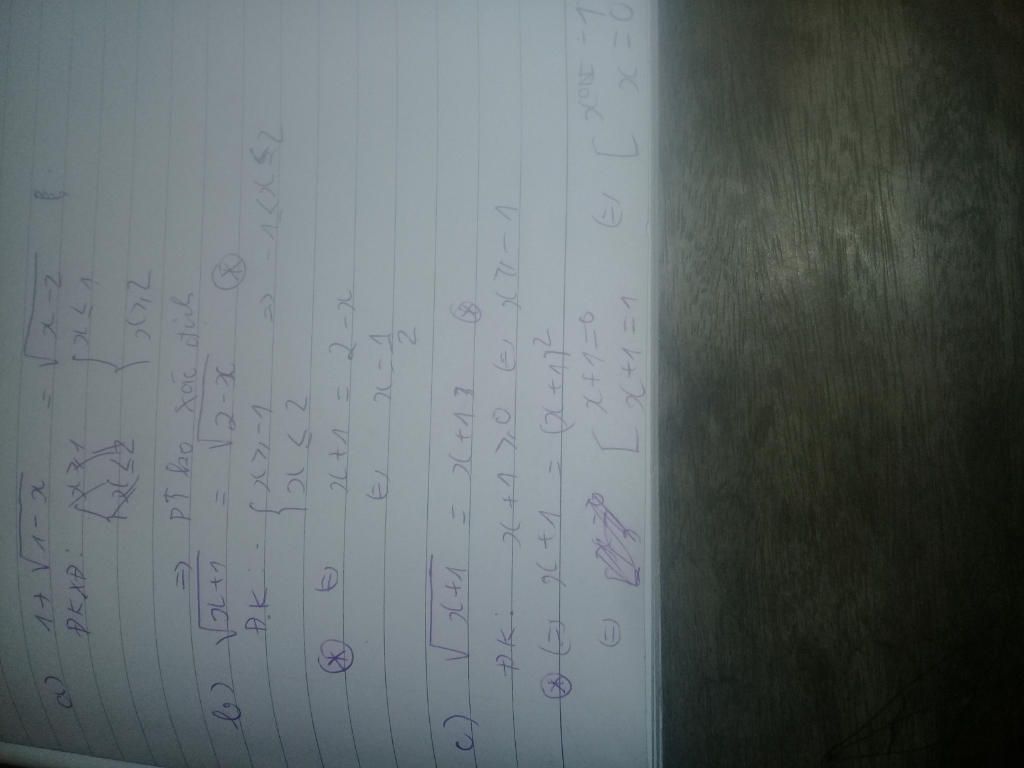 a) 1 + √1-x = √x-2
ĐKXĐ: { x ≤ 1
{ x ≥ 2
=> PT ko xác định
b) √x+1 = √2-x (*)
Đ.K: { x ≥ -1 => -1 ≤ x ≤ 2
{ x ≤ 2
(*) (=) x+1 = 2-x
(=) x = 1/2
c) √x+1 = x+1 (*)
ĐK: x+1 ≥ 0 (=) x ≥ -1
(*) (=) x+1 = (x+1)²
(=) [ x+1=0 (=) [ x = -1
[ x+1=1 x=0